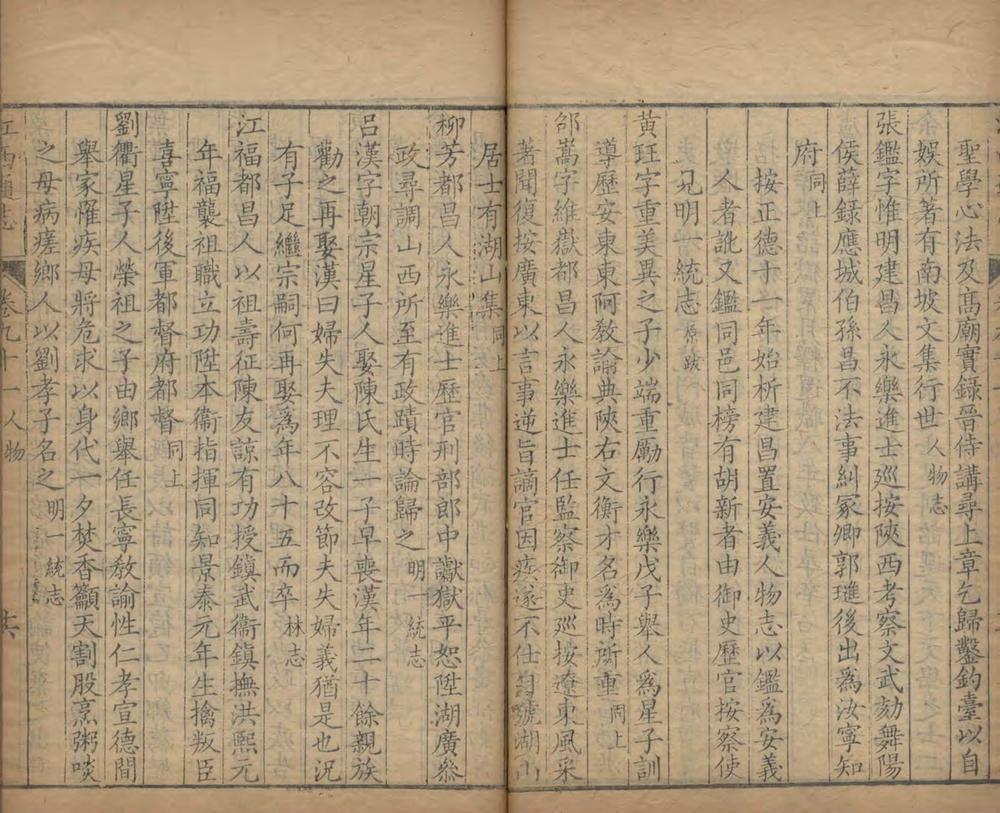 聖學心法及髙廟實録晉侍講尋上章乞歸鑿釣臺以自
娛所著有南坡文集行世人物志
張鑑字惟明建昌人永樂進士巡按陝西考察文武劾舞陽
侯薛録應城伯孫昌不法事糾冢卿郭璡後出為汝寧知
府同上
按正德十一年始析建昌置安義人物志以鑑為安義
人者訛又鑑同邑同榜有胡新者由御史歷官按察使
見明一統志
黄玨字重美異之子少端重勵行永樂戊子舉人爲星子訓
導歷安東東阿敎諭典陝右文衡才名爲時所重同上
邵嵩字維嶽都昌人永樂進士任監察御史巡按遼東風采
著聞復按廣東以言事逆旨謫官因疾遂不仕自號湖山
居士有湖山集同上
柳芳都昌人永樂進士歷官刑部郎中讞獄平恕陞湖廣叅
政尋調山西所至有政蹟時論歸之明一統志
吕漢字朝宗星子人娶陳氏生一子早喪漢年二十餘親族
勸之再娶漢曰婦失夫理不容改節夫失婦義猶是也況
有子足繼宗嗣何再娶爲年八十五而卒林志
江福都昌人以祖壽征陳友諒有功授鎮武衞鎮撫洪熙元
年福襲祖職立功陞本衞指揮同知景泰元年生擒叛臣
喜寧陞後軍都督府都督同上
劉衢星子人榮祖之子由鄉舉任長寧敎諭性仁孝宣德間
舉家罹疾母將危求以身代一夕焚香籲天割股烹粥啖
之母病瘥鄉人以劉孝子名之明一統志
江西通志 卷九十一 人物